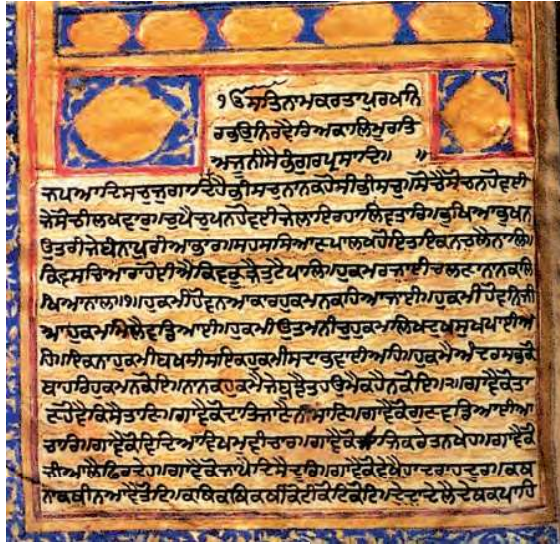 ੴਸਤਿਨਾਮਕਰਤਾਪੁਰਖਨਿ
ਰਭਉਨਿਰਵੈਰਿਅਕਾਲਿਮੂਰਤਿ
ਅਜੂਨੀਸੈਭੰਗੁਰਪ੍ਰਸਾਦਿ॥ ॥
ਜਪਆਦਿਸਚੁਜੁਗਾਦਿਹੈਭੀਸਚੁਨਾਨਕਹੋਸੀਭੀਸਚੁ॥ਸੋਚੈਸੋਚਨਹੋਵਈ
ਜੇਸੋਚੀਲਖਵਾਰ॥ਚੁਪੈਚੁਪਨਹੋਵਈਜੇਲਾਇਰਹਾਲਿਵਤਾਰ॥ਭੁਖਿਆਭੁਖਨ
ਉਤਰੀਜੇਬੰਨਾਪੁਰੀਆਭਾਰ॥ਸਹਸਸਿਆਣਪਾਲਖਹੋਇਤਾਇਕਨਚਲੈਨਾਲਿ॥
ਕਿਵਸਚਿਆਰਾਹੋਈਐਕਿਵਕੂੜੈਤੁਟੈਪਾਲਿ॥ਹੁਕਮਰਜਾਈਚਲਣਾਨਾਨਕਲਿ
ਖਿਆਨਾਲ॥੧॥ਹੁਕਮੀਹੋਵਨਆਕਾਰਹੁਕਮਨਕਹਿਆਜਾਈ॥ਹੁਕਮੀਹੋਵਨਿਜੀ
ਆਹੁਕਮਮਿਲੈਵਡਿਆਈ॥ਹੁਕਮੀਉਤਮਨੀਚੁਹੁਕਮਲਿਖਦੁਖਸੁਖਪਾਈਅ
ਹਿ॥ਇਕਨਾਹੁਕਮੀਬਖਸੀਸਇਕਹੁਕਮੀਸਦਾਭਵਾਈਅਹਿ॥ਹੁਕਮੈਅੰਦਰਸਭਕੋ
ਬਾਹਰਿਹੁਕਮਨਕੋਇ॥ਨਾਨਕਹੁਕਮੈਜੇਬੁਝੈਤਹਉਮੈਕਹੈਨਕੋਇ॥੨॥ਗਾਵੈਕੋਤਾ
ਣਹੋਵੈਕਿਸੈਤਾਣਿ॥ਗਾਵੈਕੋਦਾਤਿਜਾਣੈਨੀਸਾਣਿ॥ਗਾਵੈਕੋਗੁਣਵਡਿਆਈਆ
ਚਾਰਿ॥ਗਾਵੈਕੋਵਿਦਿਆਵਿਖਮਵੀਚਾਰ॥ਗਾਵੈਕੋਸਾਜਿਕਰੇਤਨਖੇਹ॥ਗਾਵੈਕੋ
ਜੀਆਲੈਫਿਰਦੇਹ॥ਗਾਵੈਕੋਜਾਪੈਦਿਸੈਦੂਰਿ॥ਗਾਵੈਕੋਵੇਖੈਹਾਦਰਾਹਦੂਰ॥ਕਥ
ਨਾਕਥੀਨਆਵੈਤੋਟਿ॥ਕਥਿਕਥਿਕਥੀਕੋਟੀਕੋਟਿਕੋਟਿ॥ਦੇਦਾਦੇਲੈਦੇਥਕਪਾਹਿ